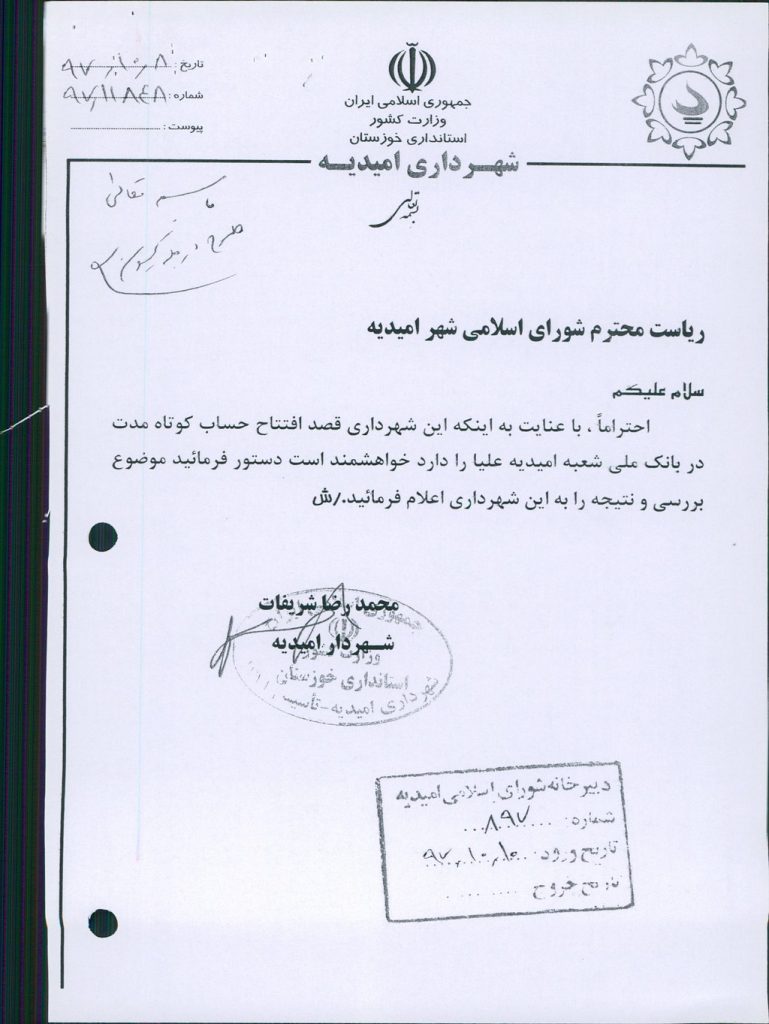 جمهوری اسلامی ایران
وزارت کشور
استانداری خوزستان
شهرداری امیدیه
تاریخ : ۹۷/۱۰/۸
شماره : ۹۷/۱۱۸۴۸
پیوست :
بسمه تعالی
باسمه تعالی
طرح در
ریاست محترم شورای اسلامی شهر امیدیه
سلام علیکم
احتراماً ، با عنایت به اینکه این شهرداری قصد افتتاح حساب کوتاه مدت
در بانک ملی شعبه امیدیه علیا را دارد خواهشمند است دستور فرمائید موضوع
بررسی و نتیجه را به این شهرداری اعلام فرمائید./ش
محمد رضا شریفات
شهردار امیدیه
جمهوری
وزارت کشور
استانداری خوزستان
شهرداری امیدیه-تأسیس
دبیرخانه شورای اسلامی امیدیه
شماره: ۸۹۷
تاریخ ورود: ۹۷/۱۰/۱۰
تاریخ خروج